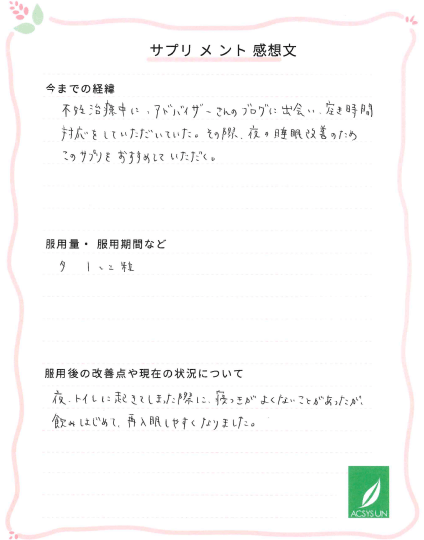 サプリメント感想文
今までの経緯
不妊治療中に、アドバイザーさんのブログに出会い、空き時間
対応をしていただいていた。その際、夜の睡眠改善のため
このサプリをおすすめしていただく。
服用量・服用期間など
夕 1〜2粒
服用後の改善点や現在の状況について
夜、トイレに起きてしまった際に、寝つきがよくないことがあったが、
飲みはじめて、再入眠しやすくなりました。
ACSYSUN